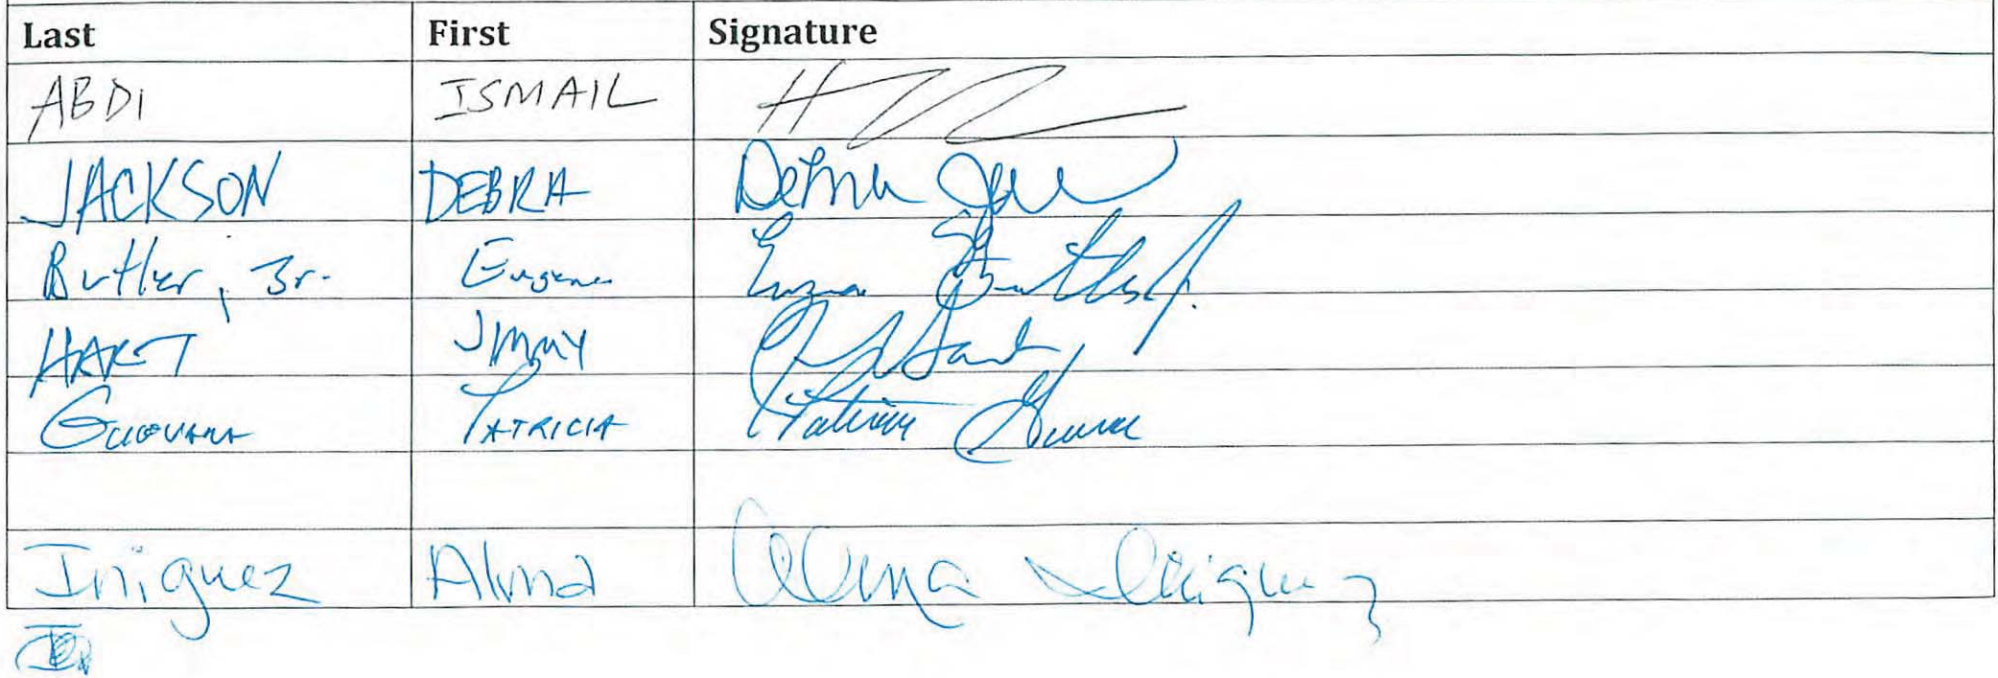 Last First Signature
ABDI ISMAIL
JACKSON DEBRA Debra
Butler, Jr. Eugene Eugene Butler Jr.
HART JIMMY
PATRICIA Patricia
Iniguez Alma Alma Iniguez